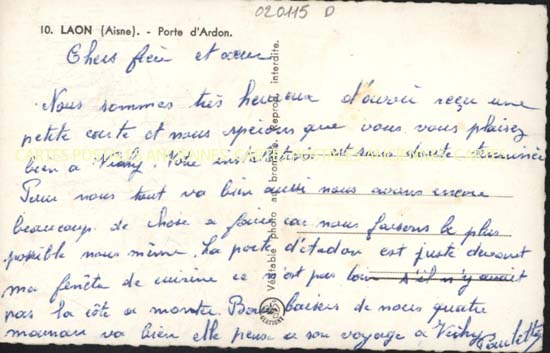 020115 D
10. LAON (Aisne). - Porte d'Ardon.
Chers frère et sœur
Nous sommes très heureux d'avoir reçu une
petite carte et nous espérons que vous vous plaisez
bien a Vichy. Votre installation est sans doute terminée
Pour nous tout va bien aussi nous avons encore
beaucoup de chose a faire car nous faisons le plus
possible nous même. La porte d'Ardon est juste devant
ma fenêtre de cuisine ce n'est pas loin s'il n'y avait
pas la côte a monter. Bons baisers de nous quatre
maman va bien elle pense a son voyage a Vichy
Paulette
Véritable photo au bromure. Reprod. interdite.